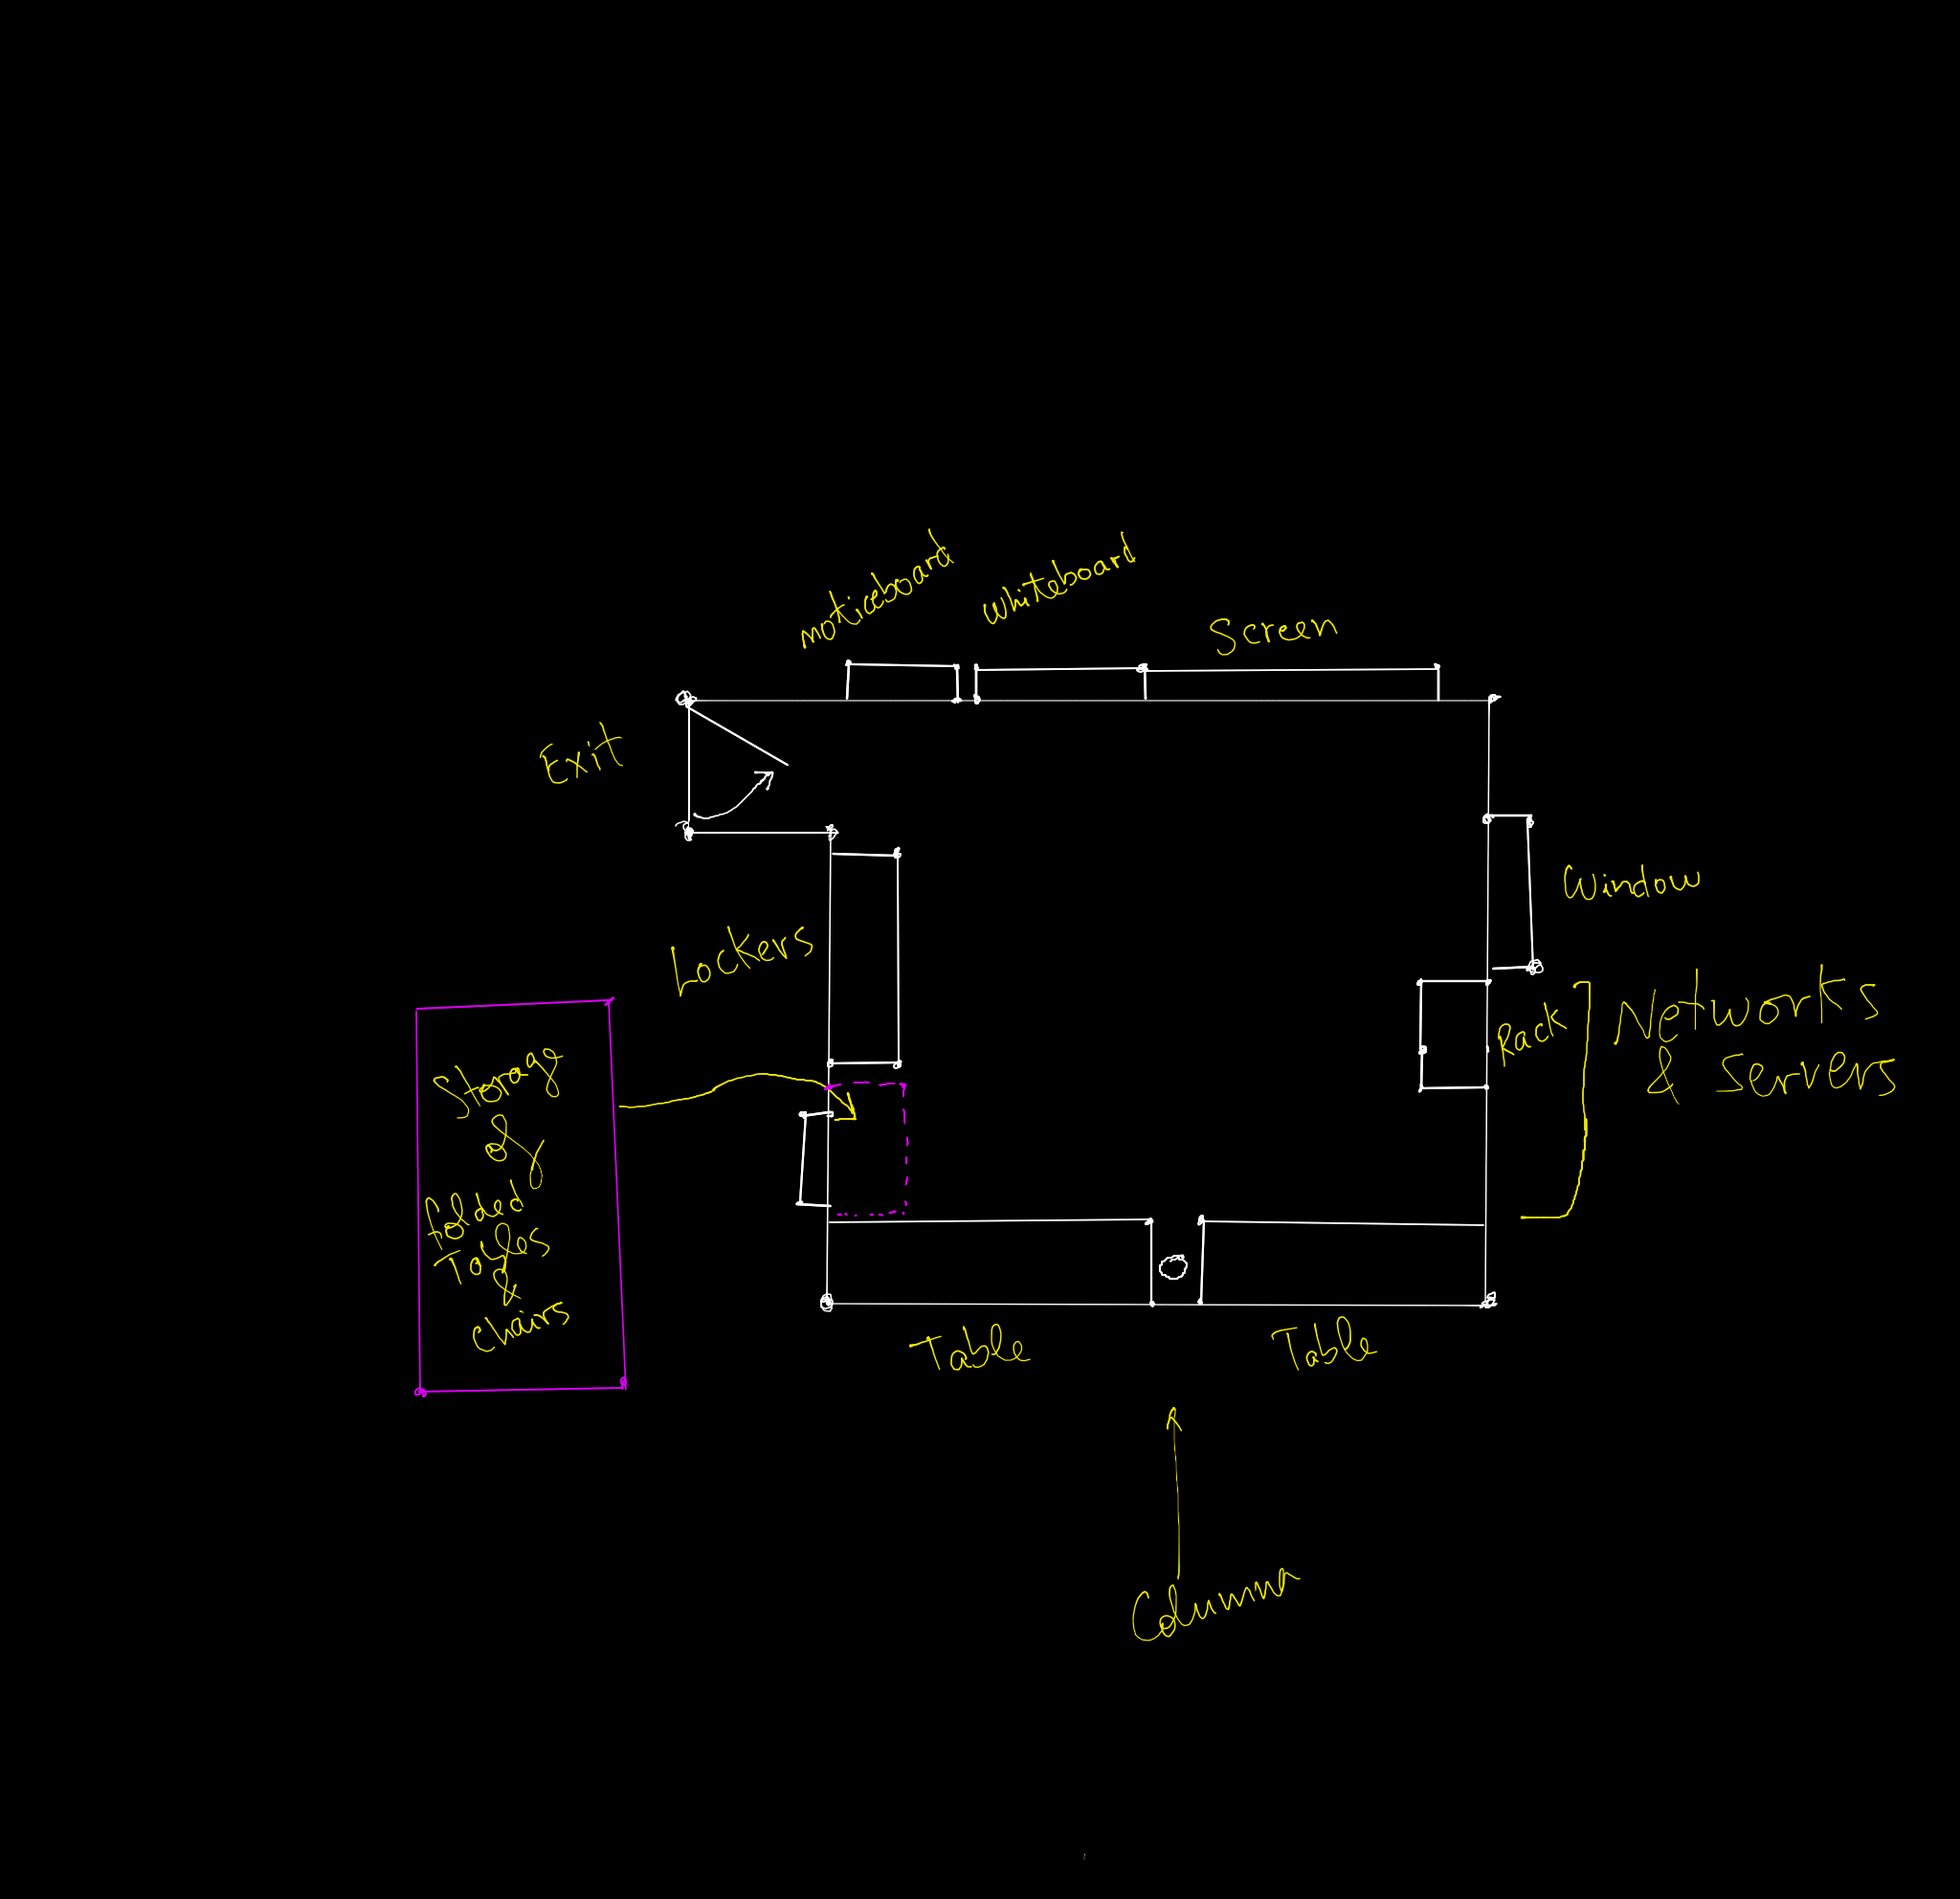 noticeboard
Whiteboard
Screen
Exit
Window
Lockers
Rack
Networks
& Servers
Storage
of
folded
Tables
&
Chairs
Table
Table
Column